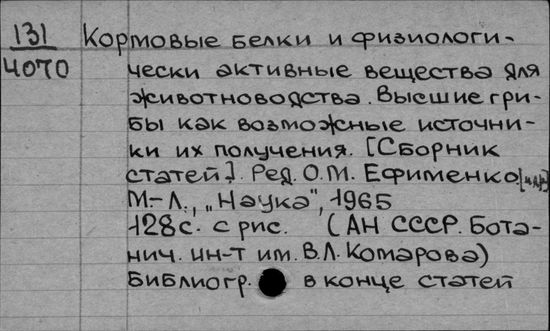 131 Кормовые белки и физиологи-
4070 чески активные вещества для
животноводства. Высшие гри-
бы как возможные источни-
ки их получения. [Сборник
статей]. Ред. О.М. Ефименко. [и др.]
М.-Л., "Наука", 1965
128с. с рис. (АН СССР. Бота-
нич. ин-т им. В.Л. Комарова)
Библиогр. в конце статей